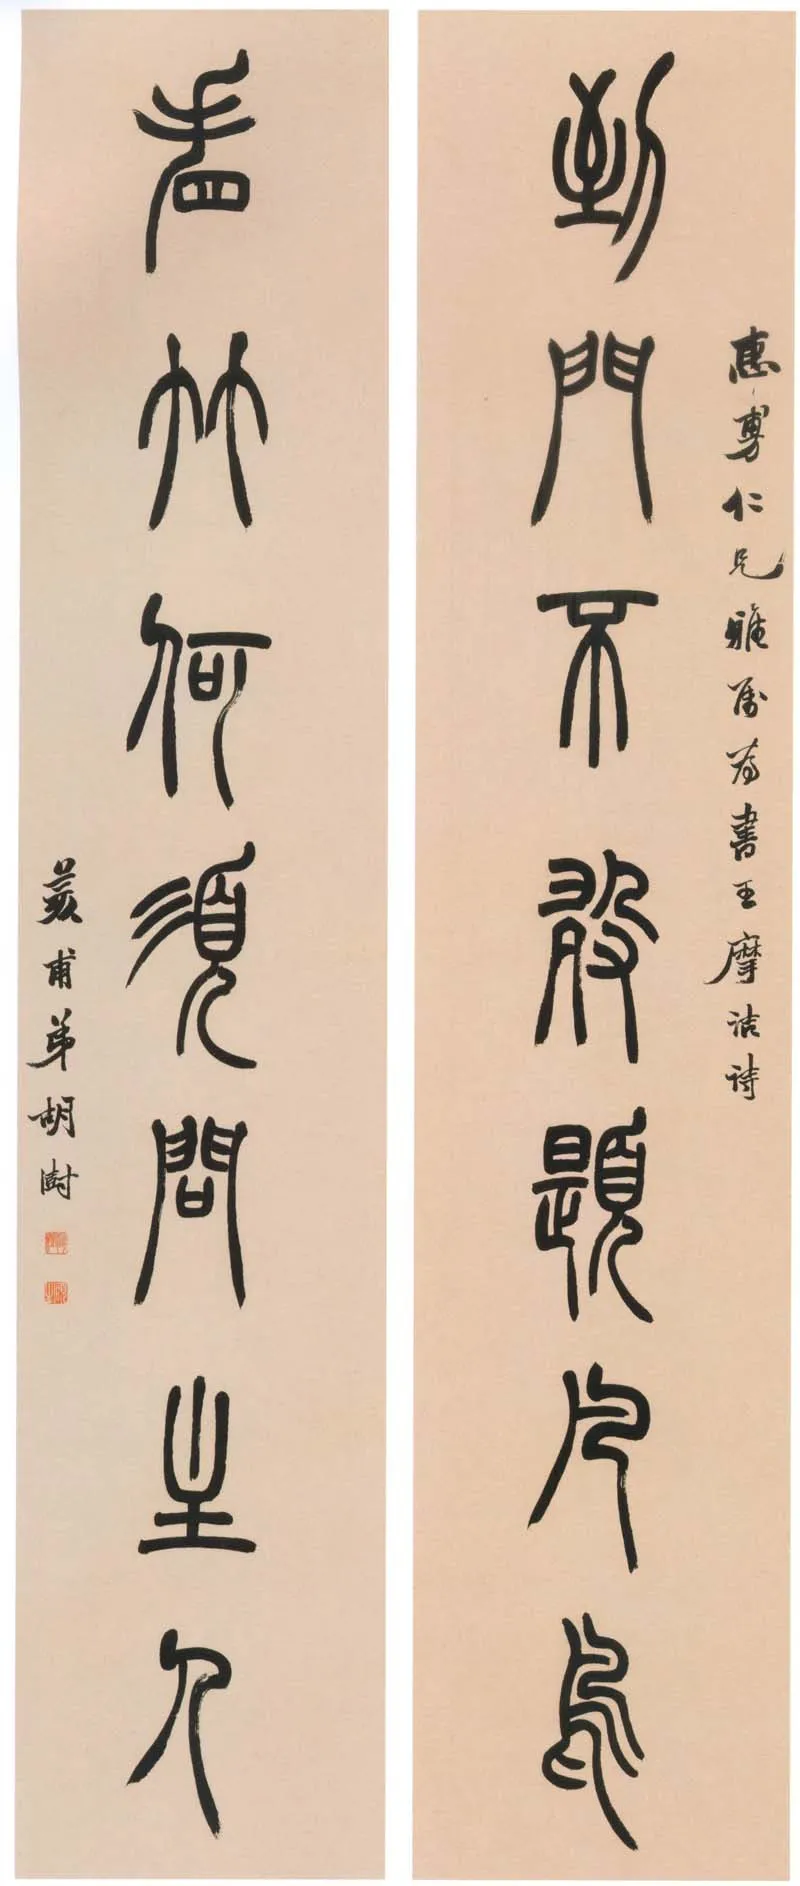 到門不敢題凡鳥
惠仁兄雅屬為書王摩詰詩
看竹何須問主人
荄甫弟胡澍